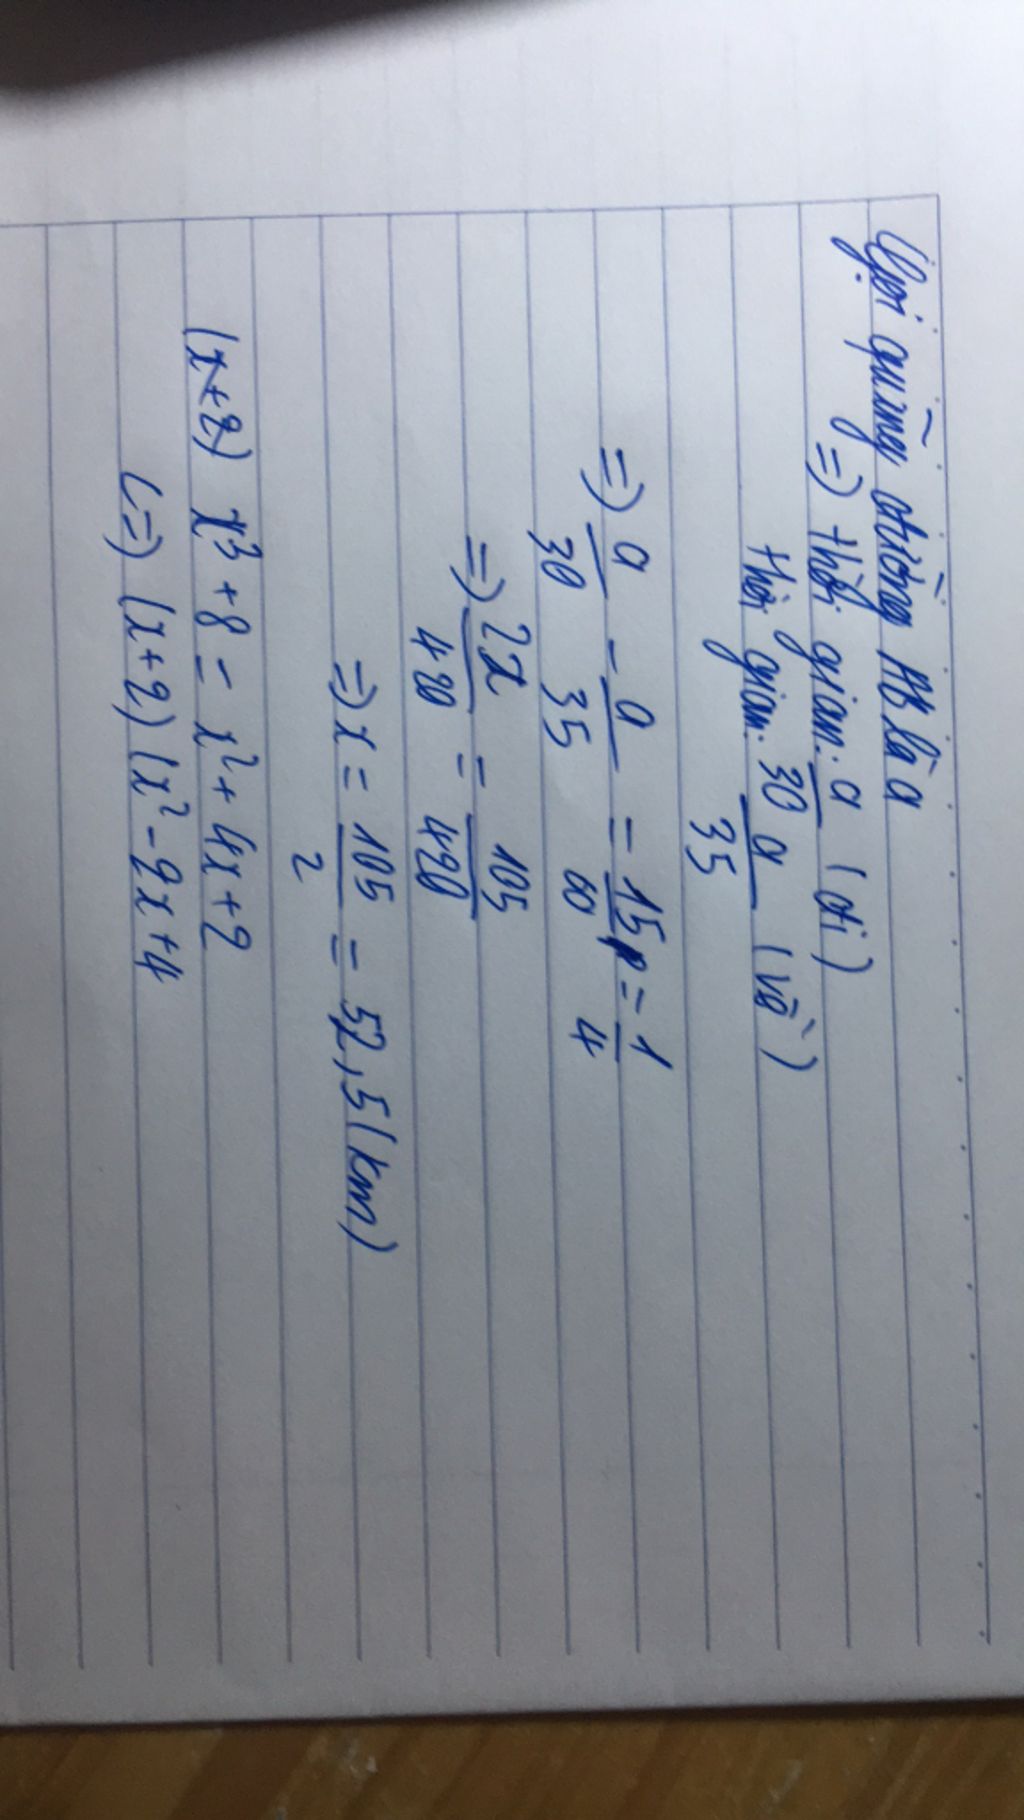 Gọi quãng đường AB là a
=) thời gian. a/30 (đi)
thời gian. a/35 (về)
=) a/30 - a/35 = 15/60 = 1/4
=) 2x/420 = 105/420
=) x = 105/2 = 52,5 (km)
(x+2) x³ + 8 = x² + 4x + 2
(=) (x+2) (x² - 2x + 4